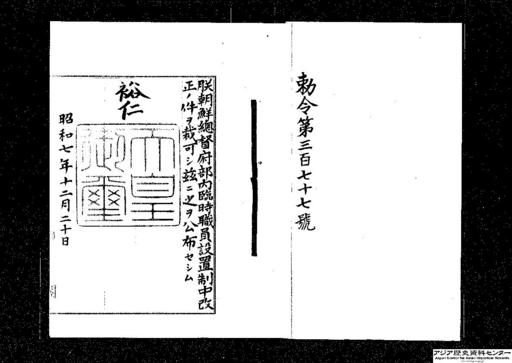 勅令第三百七十七號
朕朝鮮總督府部內臨時職員設置制中改
正ノ件ヲ裁可シ玆ニ之ヲ公布セシム
裕仁
天皇
御璽
昭和七年十二月二十日
アジア歴史資料センター
Japan Center for Asian Historical Records